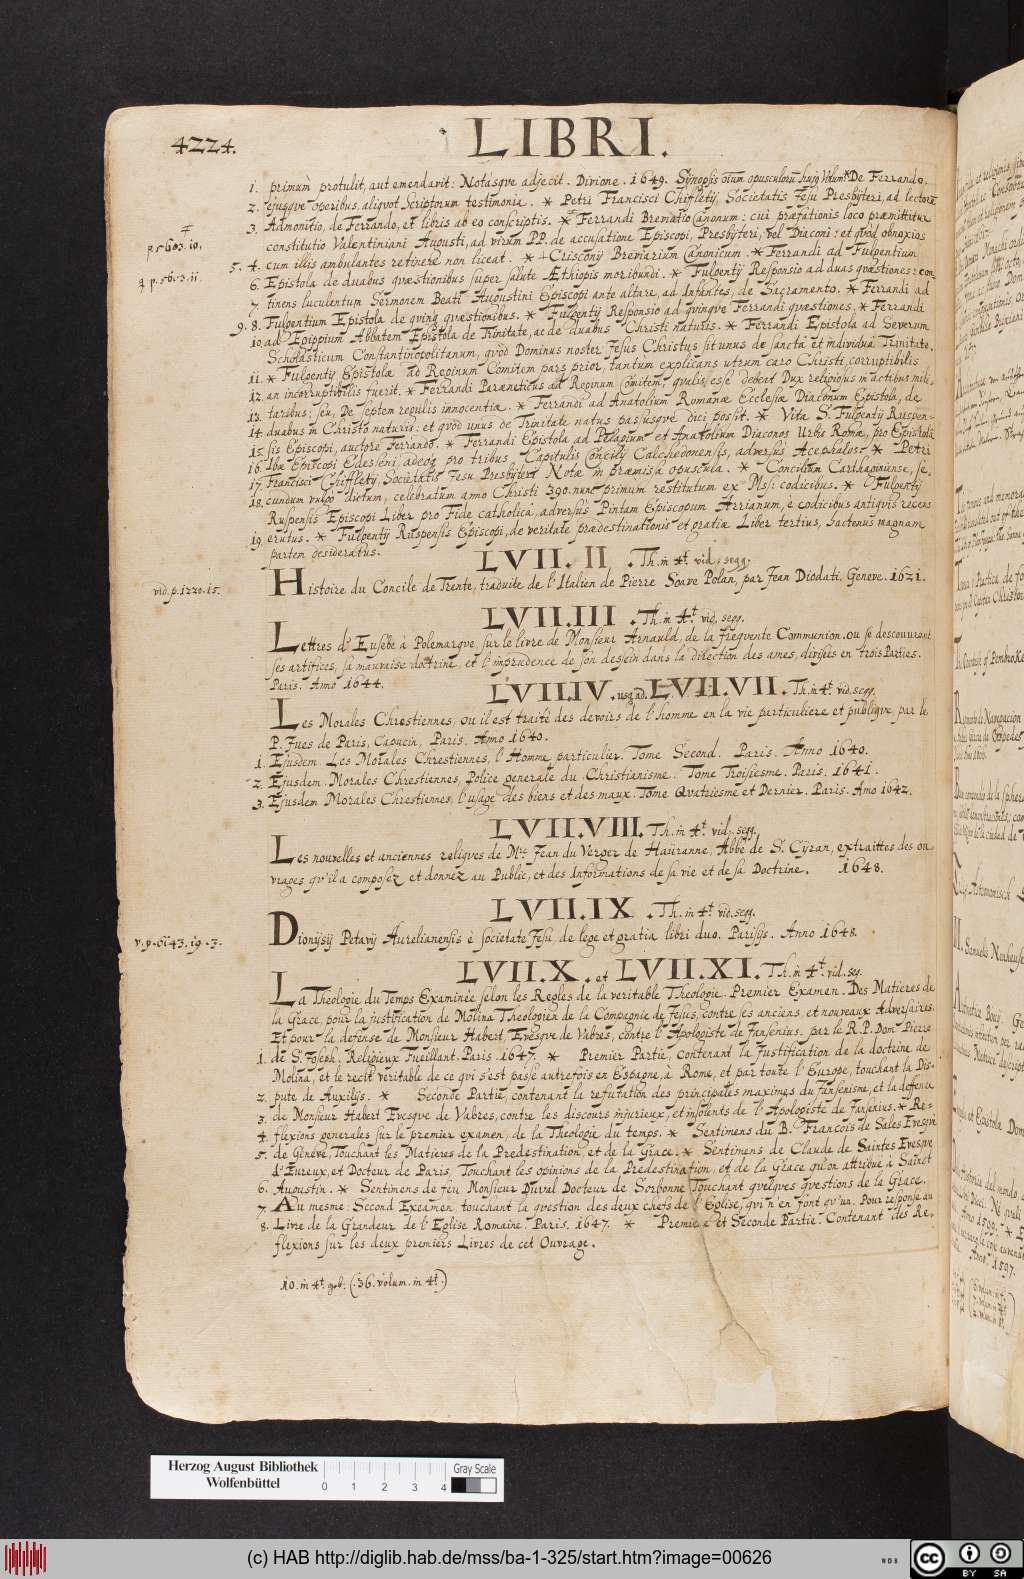 4224.
LIBRI.
1. primum protulit, aut emendavit: Notasqve adjecit. Divione. 1649. Synopsis oium opusculorū hujg Volum: * De Ferrando,
2. ejusqve operibus, aliqvot Scriptorum testimonia. * Petri Francisci Chiffletij, Societatis Jesu Presbyteri, ad lectorē
3. Admonitio, de Ferrando, et libris ab eo conscriptis. * Ferrandi Breviatio Canonum: cui præfationis loco præmittitur
p. 5603. 10.
constitutio Valentiniani Augusti, ad virum PP. de accusatione Episcopi, Presbyteri, vel Diaconi: et qvod obnoxios
5. 4. cum illis ambulantes retinere non liceat. * + Crisconij Breviarium Canonicum. * Ferrandi ad Fulgentium
p. 56.3.11.
6. Epistola de duabus qvæstionibus super salute Æthiopis moribundi. * Fulgentij Responsio ad duas qvæstiones: con-
7. tinens luculentum Sermonem Beati Augustini Episcopi ante altare, ad Infantes, de Sacramento. * Ferrandi ad
9. 8. Fulgentium Epistola de qving qvæstionibus. * Fulgentij Responsio ad qvinqve Ferrandi qvæstiones. * Ferrandi
10. ad Egippium Abbatem Epistola de Trinitate, ac de duabus Christi naturis. * Ferrandi Epistola ad Severum
Scholasticum Constantinopolitanum, qvòd Dominus noster Jesus Christus sit unus de sancta et individua Trinitate.
11. * Fulgentij Epistolæ ad Reginum Comitem pars prior, tantum explicans utrum caro Christi corruptibilis
12. an incorruptibilis fuerit. * Ferrandi Paræneticus ad Reginum Comitem, qvalis esse debeat Dux religiosus in actibus mili-
13. taribus: seu, De septem regulis innocentiæ. * Ferrandi ad Anatolium Romanæ Ecclesiæ Diaconum Epistola, de
14. duabus in Christo naturis: et qvòd unus de Trinitate natus passusqve dici possit. * Vita S. Fulgentij Ruspen-
15. sis Episcopi, auctore Ferrando. * Ferrandi Epistola ad Pelagium et Anatolium Diaconos Urbis Romæ, pro Epistolâ
16. Ibæ Episcopi Edesseni, adeoq pro tribus Capitulis Concilij Calchedonensis, adversus Acephalos. * Petri
17. Francisci Chiffletij, Societatis Jesu Presbyteri Notæ in præmissa opuscula. * Concilium Carthaginense, se-
18. cundum vulgo dictum, celebratum anno Christi 390. nunc primum restitutum ex Mss: codicibus. * Fulgentij
Ruspensis Episcopi Liber pro Fide catholica, adversus Pintam Episcopum Arrianum, è codicibus antiqvis recens
19. erutus. * Fulgentij Ruspensis Episcopi, de veritate prædestinationis et gratiæ Liber tertius, hactenus magnam
partem desideratus.
LVII. II. Th. in 4t. vid. segg.
vid. p. 1220. 15.
Histoire du Concile de Trente, traduite de l'Italien de Pierre Soave Polan, par Jean Diodati. Geneve. 1621.
LVII. III. Th. in 4t. vid. segg.
Lettres d'Eusebe à Polemarqve sur le livre de Monsieur Arnauld, de la freqvente Communion. ou se descouvrent
ses artifices, sa mauvaise doctrine, et l'imprudence de son dessein dans la direction des ames, divisées en trois Parties.
Paris. Anno 1644.
LVII. IV. usq ad. LVII. VII. Th. in 4t. vid. segg.
Les Morales Chrestiennes, ou il est traité des devoirs de l'homme en la vie particuliere et publiqve, par le
P. Yves de Paris, Capucin, Paris. Anno 1640.
1. Ejusdem Les Morales Chrestiennes, l'Homme particulier. Tome Second. Paris. Anno 1640.
2. Ejusdem. Morales Chrestiennes, Police generale du Christianisme. Tome Troisiesme. Paris. 1641.
3. Ejusdem Morales Chrestiennes, l'usage des biens et des maux. Tome Qvatriesme et Dernier. Paris. Anno 1642.
LVII. VIII. Th. in 4t. vid. segg.
Les nouvelles et anciennes reliqves de Mre Jean du Verger de Hauranne, Abbé de S. Cyran, extraittes des ou-
vrages qv'il a composez et donnez au Public, et des Informations de sa vie et de sa Doctrine. 1648.
LVII. IX. Th. in 4t. vid. segg.
v. p. 6143. 19. 3.
Dionysij Petavij Aurelianensis è societate Jesu, de lege et gratia libri duo. Parisijs. Anno 1648.
LVII. X. et LVII. XI. Th. in 4t. vid. seg.
La Theologie du Temps Examinée selon les Regles de la veritable Theologie. Premier Examen. Des Matieres de
la Grace, pour la justification de Molina Theologien de la Compagnie de Jesus, contre ses anciens, et nouveaux Adversaires.
Et pour la defense de Monsieur Habert, Evesqve de Vabres, contre l'Apologiste de Jansenius. par le R. P. Dom Pierre
1. de S. Joseph, Religieux Fueillant. Paris. 1647. * Premier Partie, contenant la Justification de la doctrine de
Molina, et le recit veritable de ce qvi s'est passé autrefois en Espagne, à Rome, et par toute l'Europe, touchant la Dis-
2. pute de Auxilijs. * Seconde Partie, contenant la refutation des principales maximes du Jansenisme, et la deffence
3. de Monsieur Habert Evesqve de Vabres, contre les discours injurieux, et insolents de l'Apologiste de Jansenius. * Re-
4. flexions generales sur le premier examen, de la Theologie du temps. * Sentimens du B. Francois de Sales Evesqve
5. de Geneve, Touchant les Matieres de la Predestination, et de la Grace. * Sentimens de Claude de Saintes Evesqve
d'Eureux, et Docteur de Paris, Touchant les opinions de la Predestination, et de la Grace qu'on attribue à Sainct
6. Augustin. * Sentimens de feu Monsieur Duval Docteur de Sorbonne Touchant qvelqves qvestions de la Grace.
7. Au mesme: Second Examen touchant la qvestion des deux chefs de l'Eglise, qvi n'en font qv'un. Pour response au
8. Livre de la Grandeur de l'Eglise Romaine. Paris. 1647. * Premiere et Seconde Partie. Contenant des Re-
flexions sur les deux premiers Livres de cet Ouvrage.
10. in 4t. geb: (36. volum. in 4t.)
Herzog August Bibliothek
Wolfenbüttel
0 1 2 3 4
Gray Scale
(c) HAB http://diglib.hab.de/mss/ba-1-325/start.htm?image=00626
WDB
cc BY SA